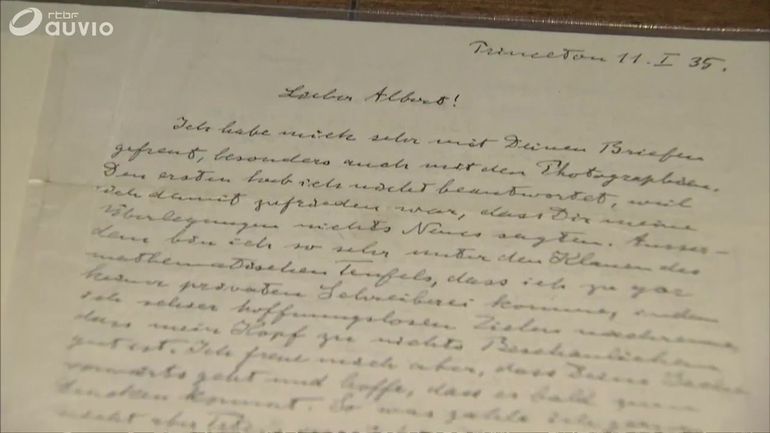 rtbf
auvio
Princeton 11. I 35.
Lieber Albert!
Ich habe mich sehr mit Deinen Briefen
gefreut, besonders auch mit den Photographien.
Den ersten hab ich nicht beantwortet, weil
ich damit zufrieden war, dass Dir meine
Überlegungen nichts Neues sagten. Ausser-
dem bin ich so sehr unter den Klauen des
mathematischen Teufels, dass ich zu gar
keiner privaten Schreiberei komme, indem
ich schier hoffnungslosen Zielen nachrenne,
dass mein Kopf zu nichts Beschaulichem
gut ist. Ich freue mich aber, dass Deine
vorwärts geht und hoffe, dass es bald zum
Drucken kommt. So was
nicht aber